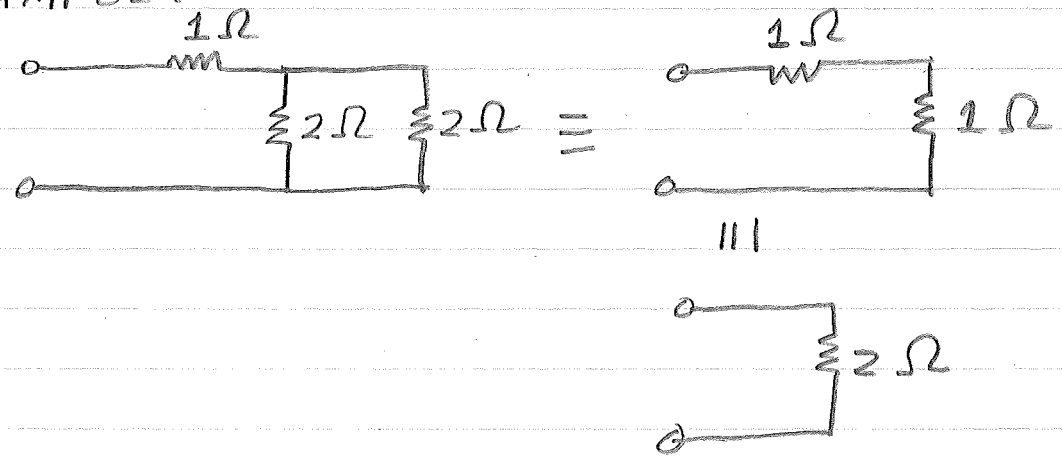 1 Ω
1 Ω
2 Ω
2 Ω
≡
1 Ω
≡
2 Ω